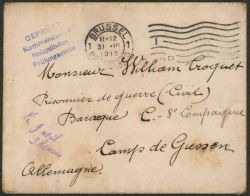 GEPRÜFT
Kommandantur
Holzminden
Prüfungsstelle
BRUSSEL
1 11-12 1
31 III
1915
Monsieur William Croquet
Prisonnier de guerre (Civil)
Baraque C. - 8e Compagnie
Camp de Giessen
Allemagne